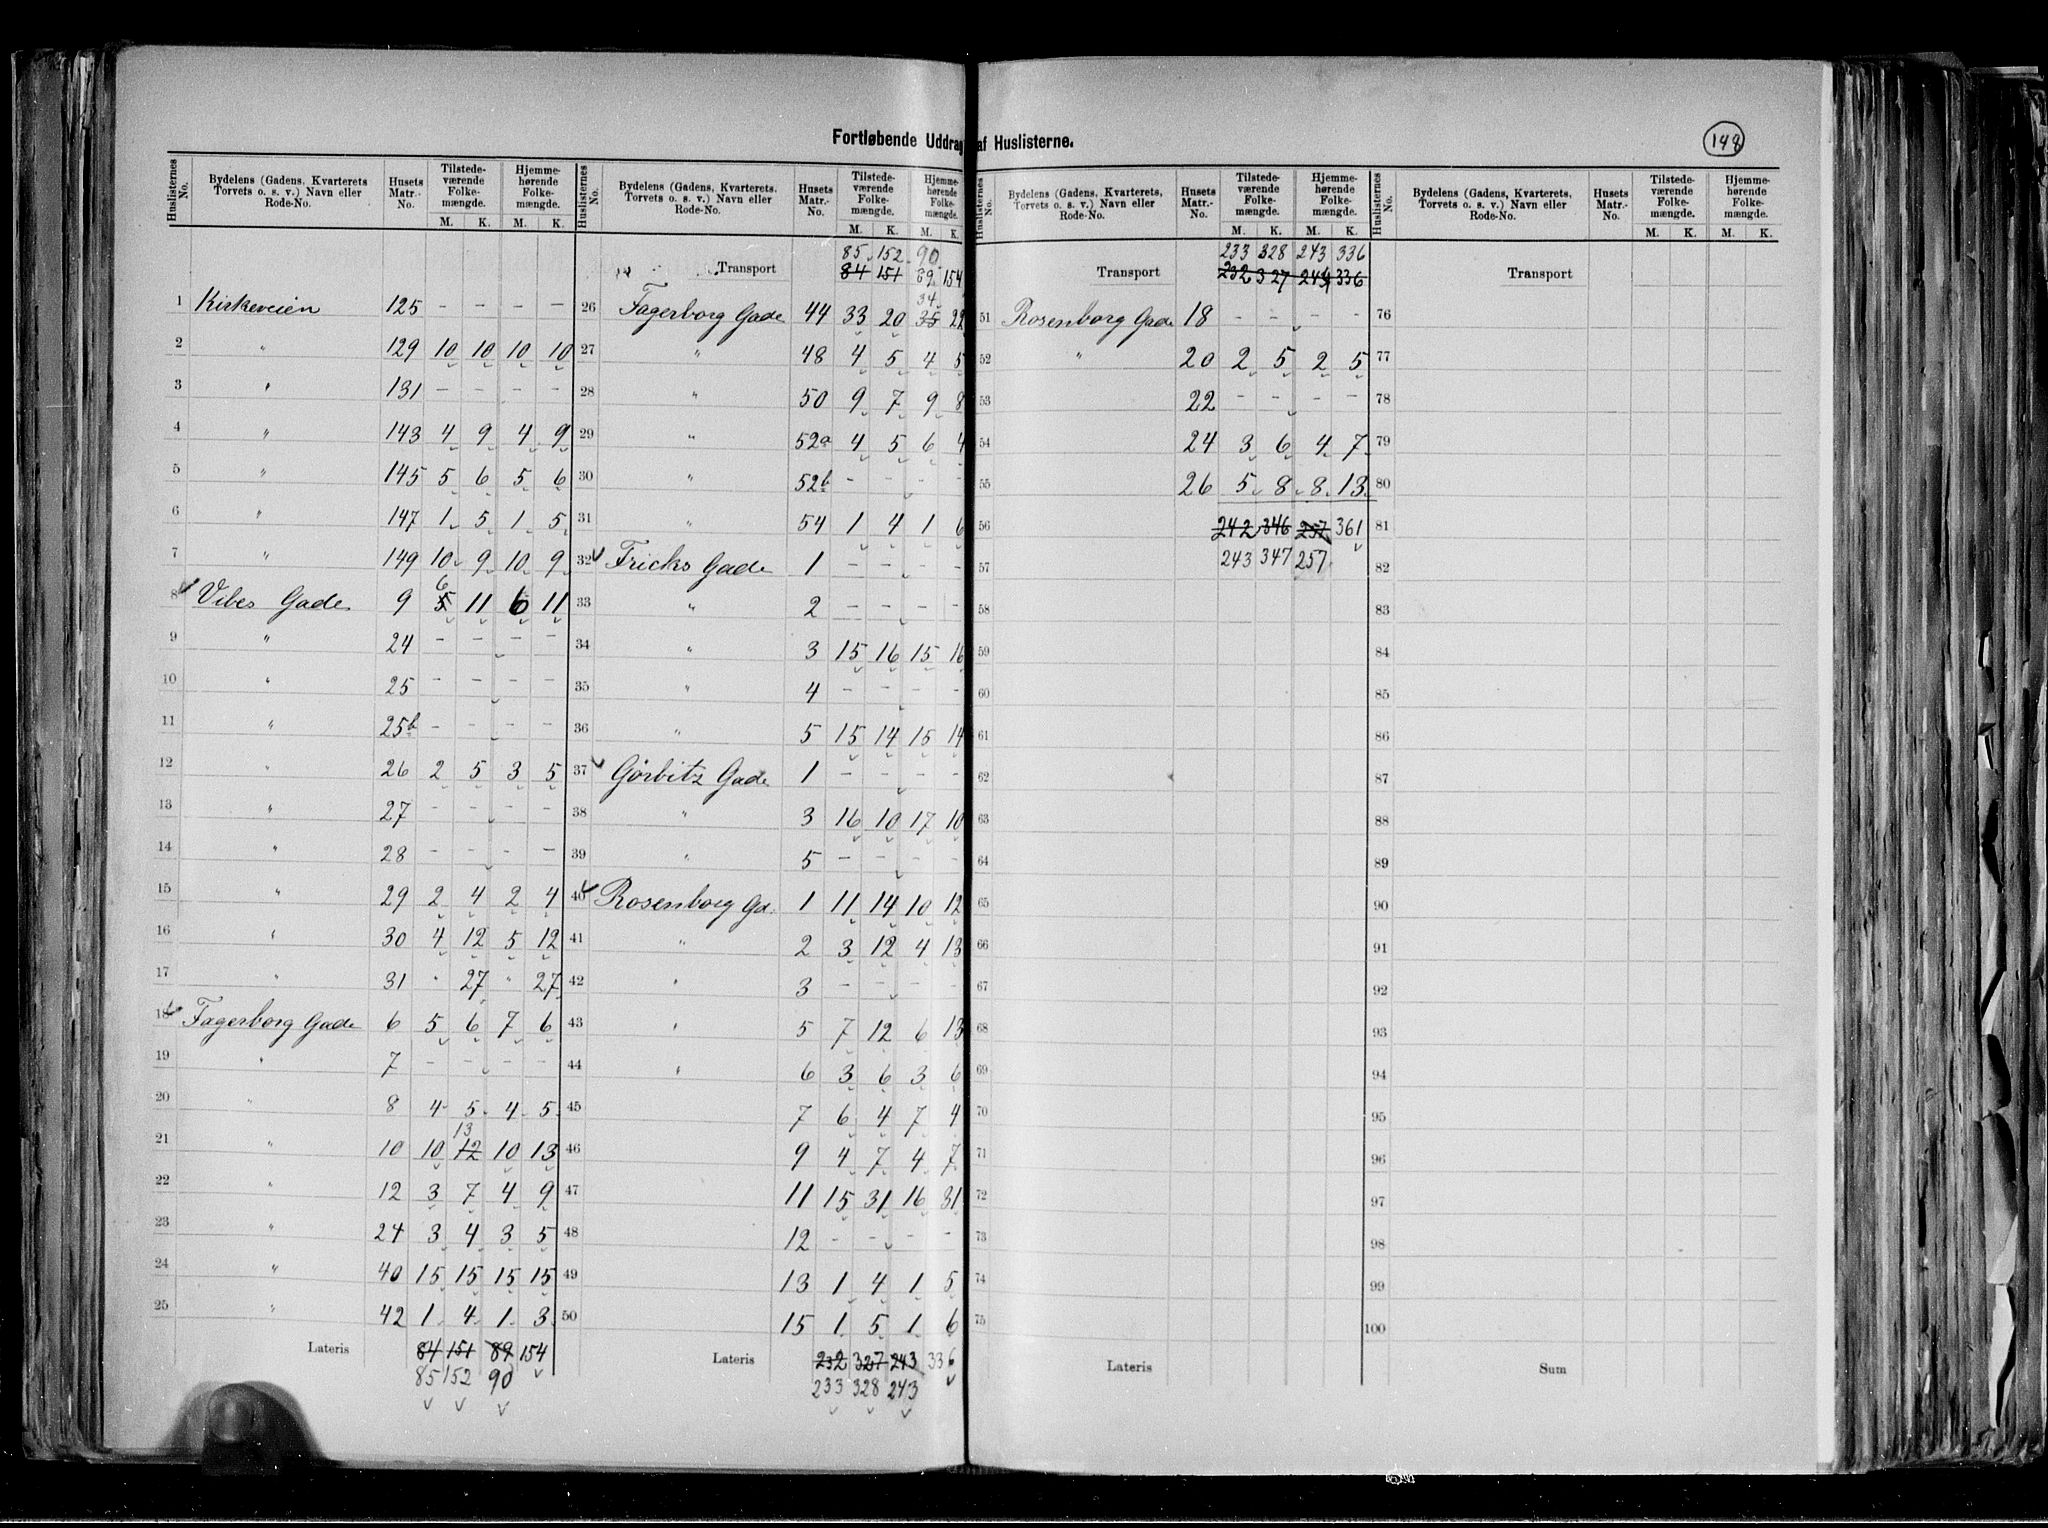 148
Fortløbende Uddrag af Huslisterne.
Huslisternes No. Bydelens (Gadens, Kvarterets, Torvets o. s. v.) Navn eller Rode-No. Husets Matr.-No. Tilstedeværende Folkemængde. M. K. Hjemmehørende Folkemængde. M. K.
1 Kirkeveien 125 - - - -
2 " 129 10 10 10 10
3 " 131 - - - -
4 " 143 4 9 4 9
5 " 145 5 6 5 6
6 " 147 1 5 1 5
7 " 149 10 9 10 9
6
8 Vibes Gade 9 5 11 6 11
9 " 24 - - - -
10 " 25 - - - -
11 " 25b - - - -
12 " 26 2 5 3 5
13 " 27 - - - -
14 " 28 - - - -
15 " 29 2 4 2 4
16 " 30 4 12 5 12
17 " 31 " 27 " 27
18 Fagerborg Gade 6 5 6 7 6
19 " 7 - - - -
20 " 8 4 5 4 5
13
21 " 10 10 12 10 13
22 " 12 3 7 4 9
23 " 24 3 4 3 5
24 " 40 15 15 15 15
25 " 42 1 4 1 3
Lateris 84 151 89 154
85 152 90
Huslisternes No. Bydelens (Gadens, Kvarterets, Torvets o. s. v.) Navn eller Rode-No. Husets Matr.-No. Tilstedeværende Folkemængde. M. K. Hjemmehørende Folkemængde. M. K.
85 152 90
Transport 84 151 89 154
34
26 Fagerborg Gade 44 33 20 35 22
27 " 48 4 5 4 5
28 " 50 9 7 9 8
29 " 52a 4 5 6 4
30 " 52b - - - -
31 " 54 1 4 1 6
32 Fricks Gade 1 - - - -
33 " 2 - - - -
34 " 3 15 16 15 16
35 " 4 - - - -
36 " 5 15 14 15 14
37 Gørbitz Gade 1 - - - -
38 " 3 16 10 17 10
39 " 5 - - - -
40 Rosenborg Gd. 1 11 14 10 12
41 " 2 3 12 4 13
42 " 3 - - - -
43 " 5 7 12 6 13
44 " 6 3 6 3 6
45 7 6 4 7 4
46 9 4 7 4 7
47 11 15 31 16 31
48 12 - - - -
49 13 1 4 1 5
50 15 1 5 1 6
Lateris 232 327 243 336
233 328 243
Huslisternes No. Bydelens (Gadens, Kvarterets, Torvets o. s. v.) Navn eller Rode-No. Husets Matr.-No. Tilstedeværende Folkemængde. M. K. Hjemmehørende Folkemængde. M. K.
233 328 243 336
Transport 232 327 244 336
51 Rosenborg Gade 18 - - - -
52 " 20 2 5 2 5
53 22 - - - -
54 24 3 6 4 7
55 26 5 8 8 13
56 242 346 257 361
57 243 347 257
58
59
60
61
62
63
64
65
66
67
68
69
70
71
72
73
74
75
Lateris
Huslisternes No. Bydelens (Gadens, Kvarterets, Torvets o. s. v.) Navn eller Rode-No. Husets Matr.-No. Tilstedeværende Folkemængde. M. K. Hjemmehørende Folkemængde. M. K.
Transport
76
77
78
79
80
81
82
83
84
85
86
87
88
89
90
91
92
93
94
95
96
97
98
99
100
Sum